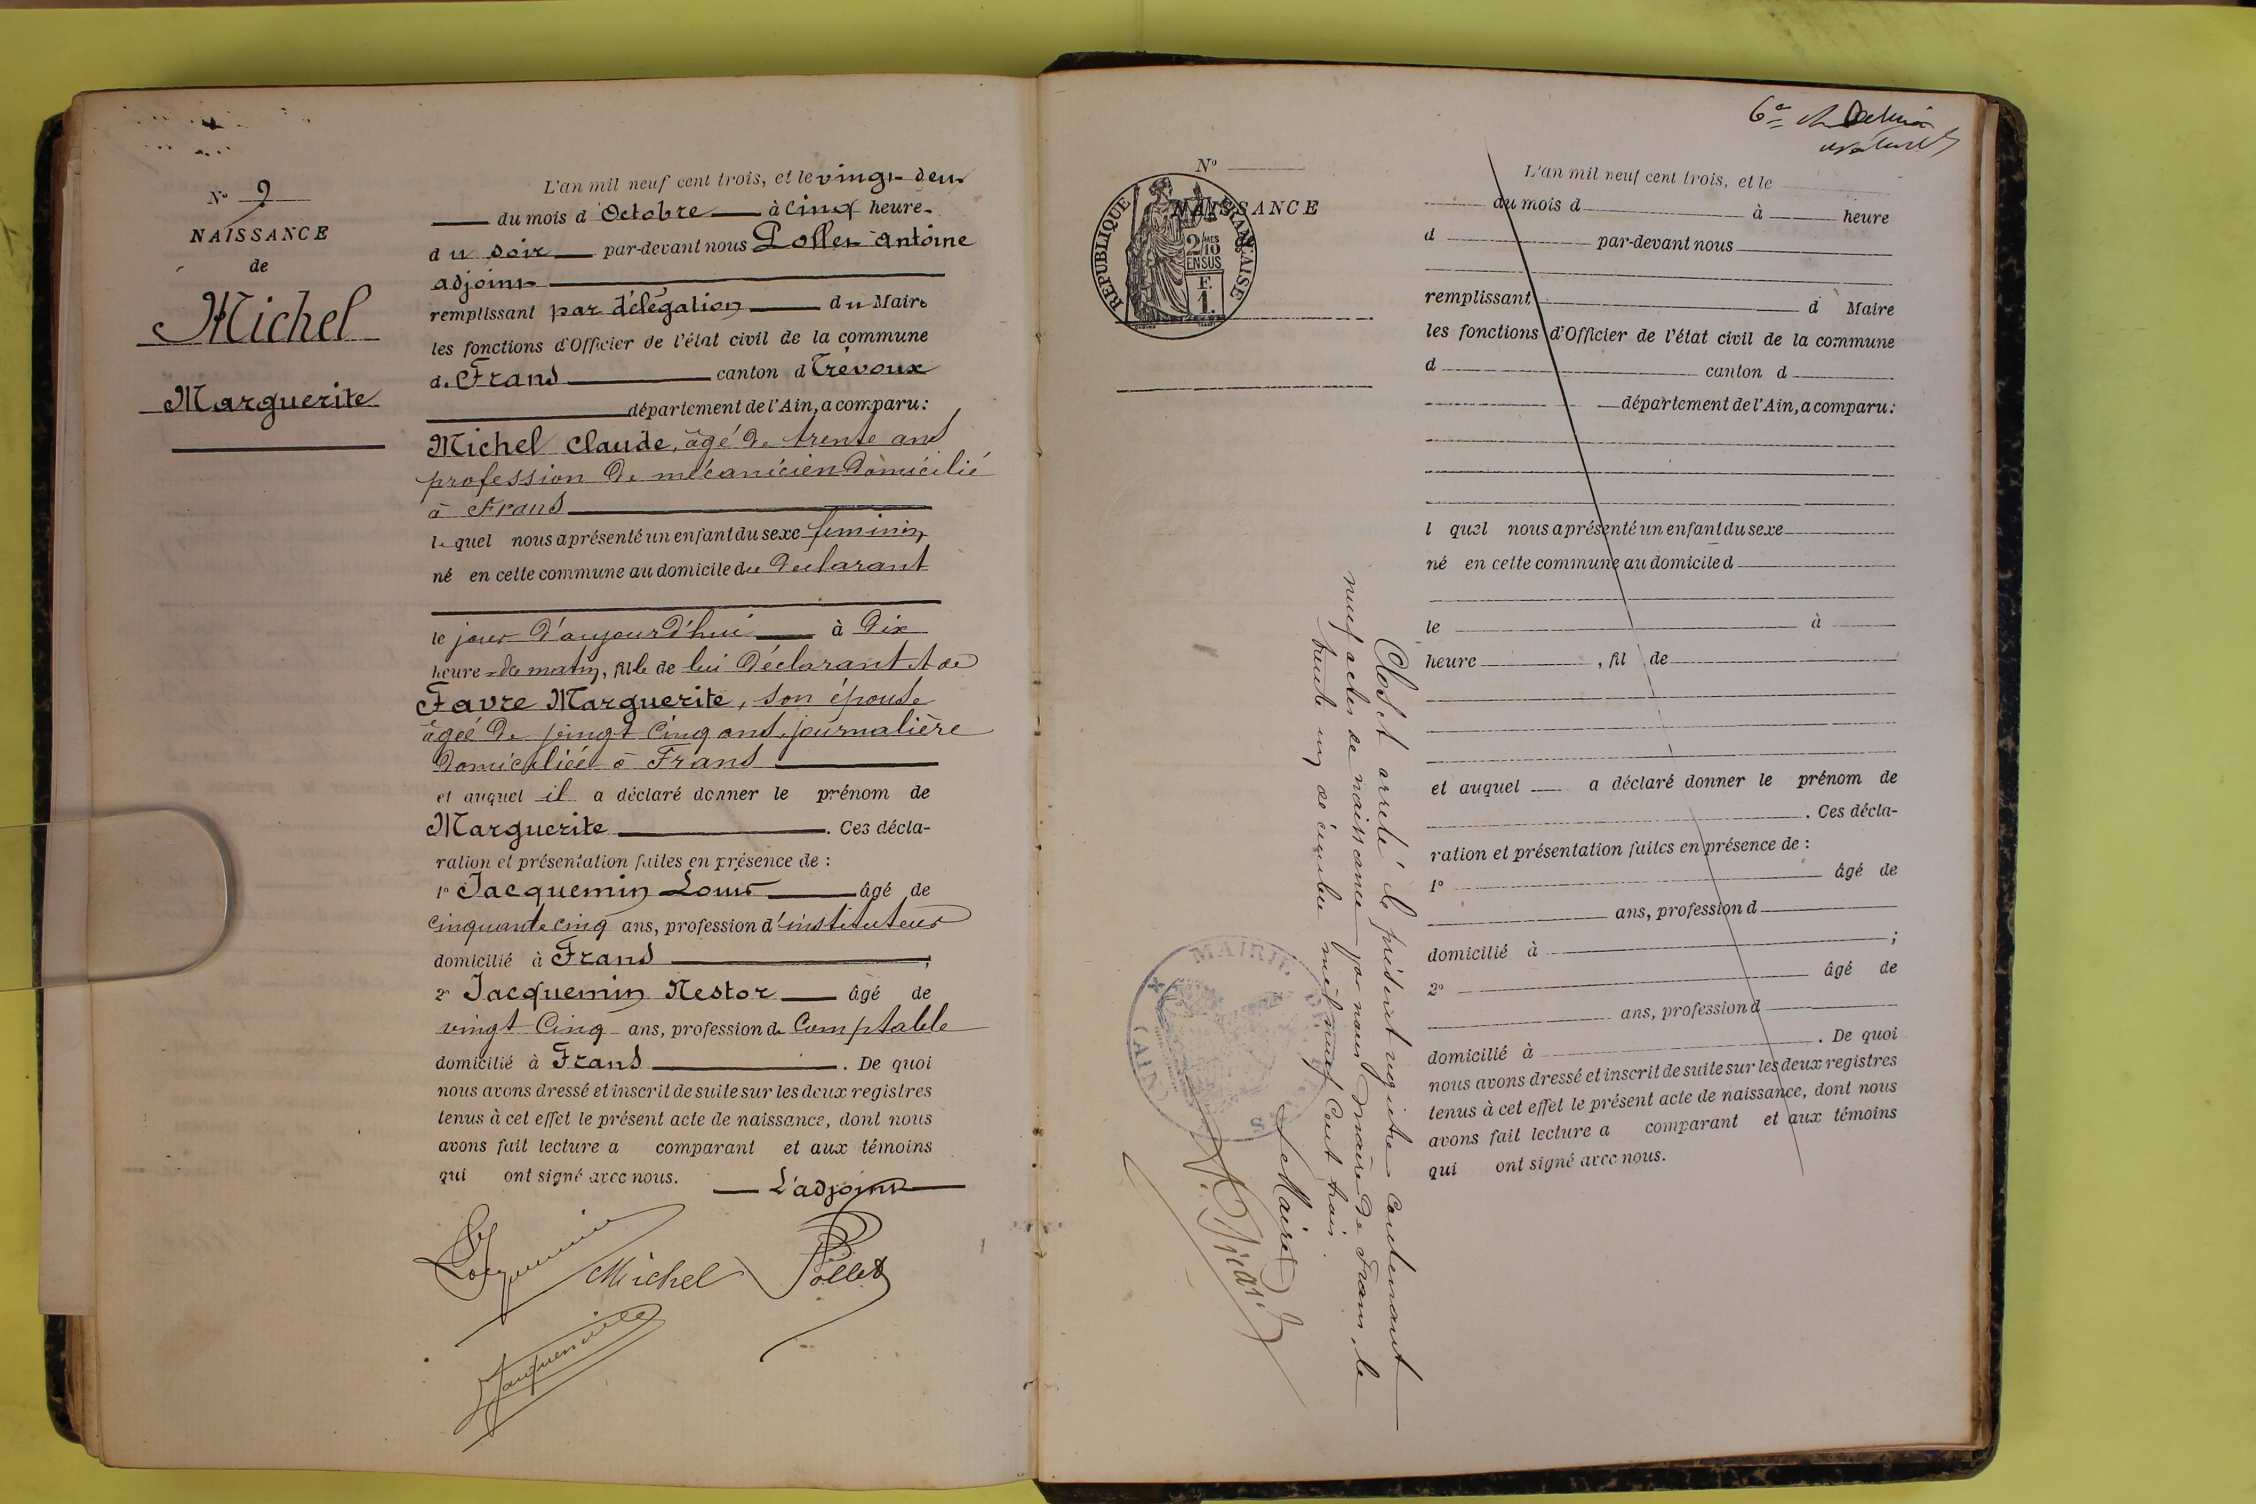 N° 9
NAISSANCE
de
Michel
Marguerite
L'an mil neuf cent trois, et le vingt deux
du mois d'Octobre à cinq heure
du soir par-devant nous Pollet Antoine
adjoint
remplissant par délégation du Maire
les fonctions d'Officier de l'état civil de la commune
de Frans canton d Trévoux
département de l'Ain, a comparu:
Michel Claude, âgé de trente ans
profession de mécanicien domicilié
à Frans
lequel nous a présenté un enfant du sexe féminin
né en cette commune au domicile du declarant
le jour d'aujourd'hui à dix
heure du matin, fille de lui déclarant et de
Favre Marguerite, son épouse
âgée de vingt cinq ans, journalière
domiciliée à Frans
et auquel il a déclaré donner le prénom de
Marguerite. Ces décla-
ration et présentation faites en présence de :
1° Jacquemin Louis âgé de
cinquante cinq ans, profession d'instituteur
domicilié à Frans ;
2° Jacquemin Nestor âgé de
vingt cinq ans, profession de Comptable
domicilié à Frans. De quoi
nous avons dressé et inscrit de suite sur les deux registres
tenus à cet effet le présent acte de naissance, dont nous
avons fait lecture a comparant et aux témoins
qui ont signé avec nous.
L'adjoint
Jacquemin
Michel
Pollet
Jacquemin
6e
N°
NAISSANCE
RÉPUBLIQUE FRANÇAISE
2/10MES
EN SUS
F.
1.
L'an mil neuf cent trois, et le
du mois d à heure
d par-devant nous
remplissant d Maire
les fonctions d'Officier de l'état civil de la commune
d canton d
département de l'Ain, a comparu:
l quel nous a présenté un enfant du sexe
né en cette commune au domicile d
le à
heure , fil de
et auquel a déclaré donner le prénom de
. Ces décla-
ration et présentation faites en présence de :
1° âgé de
ans, profession d
domicilié à ;
2° âgé de
ans, profession d
domicilié à . De quoi
nous avons dressé et inscrit de suite sur les deux registres
tenus à cet effet le présent acte de naissance, dont nous
avons fait lecture a comparant et aux témoins
qui ont signé avec nous.
Clos et arrêté le présent registre contenant
neuf actes de naissance par nous Maire de Frans, le
trente un décembre mil neuf cent trois.
Le Maire
MAIRIE DE FRANS
(AIN)